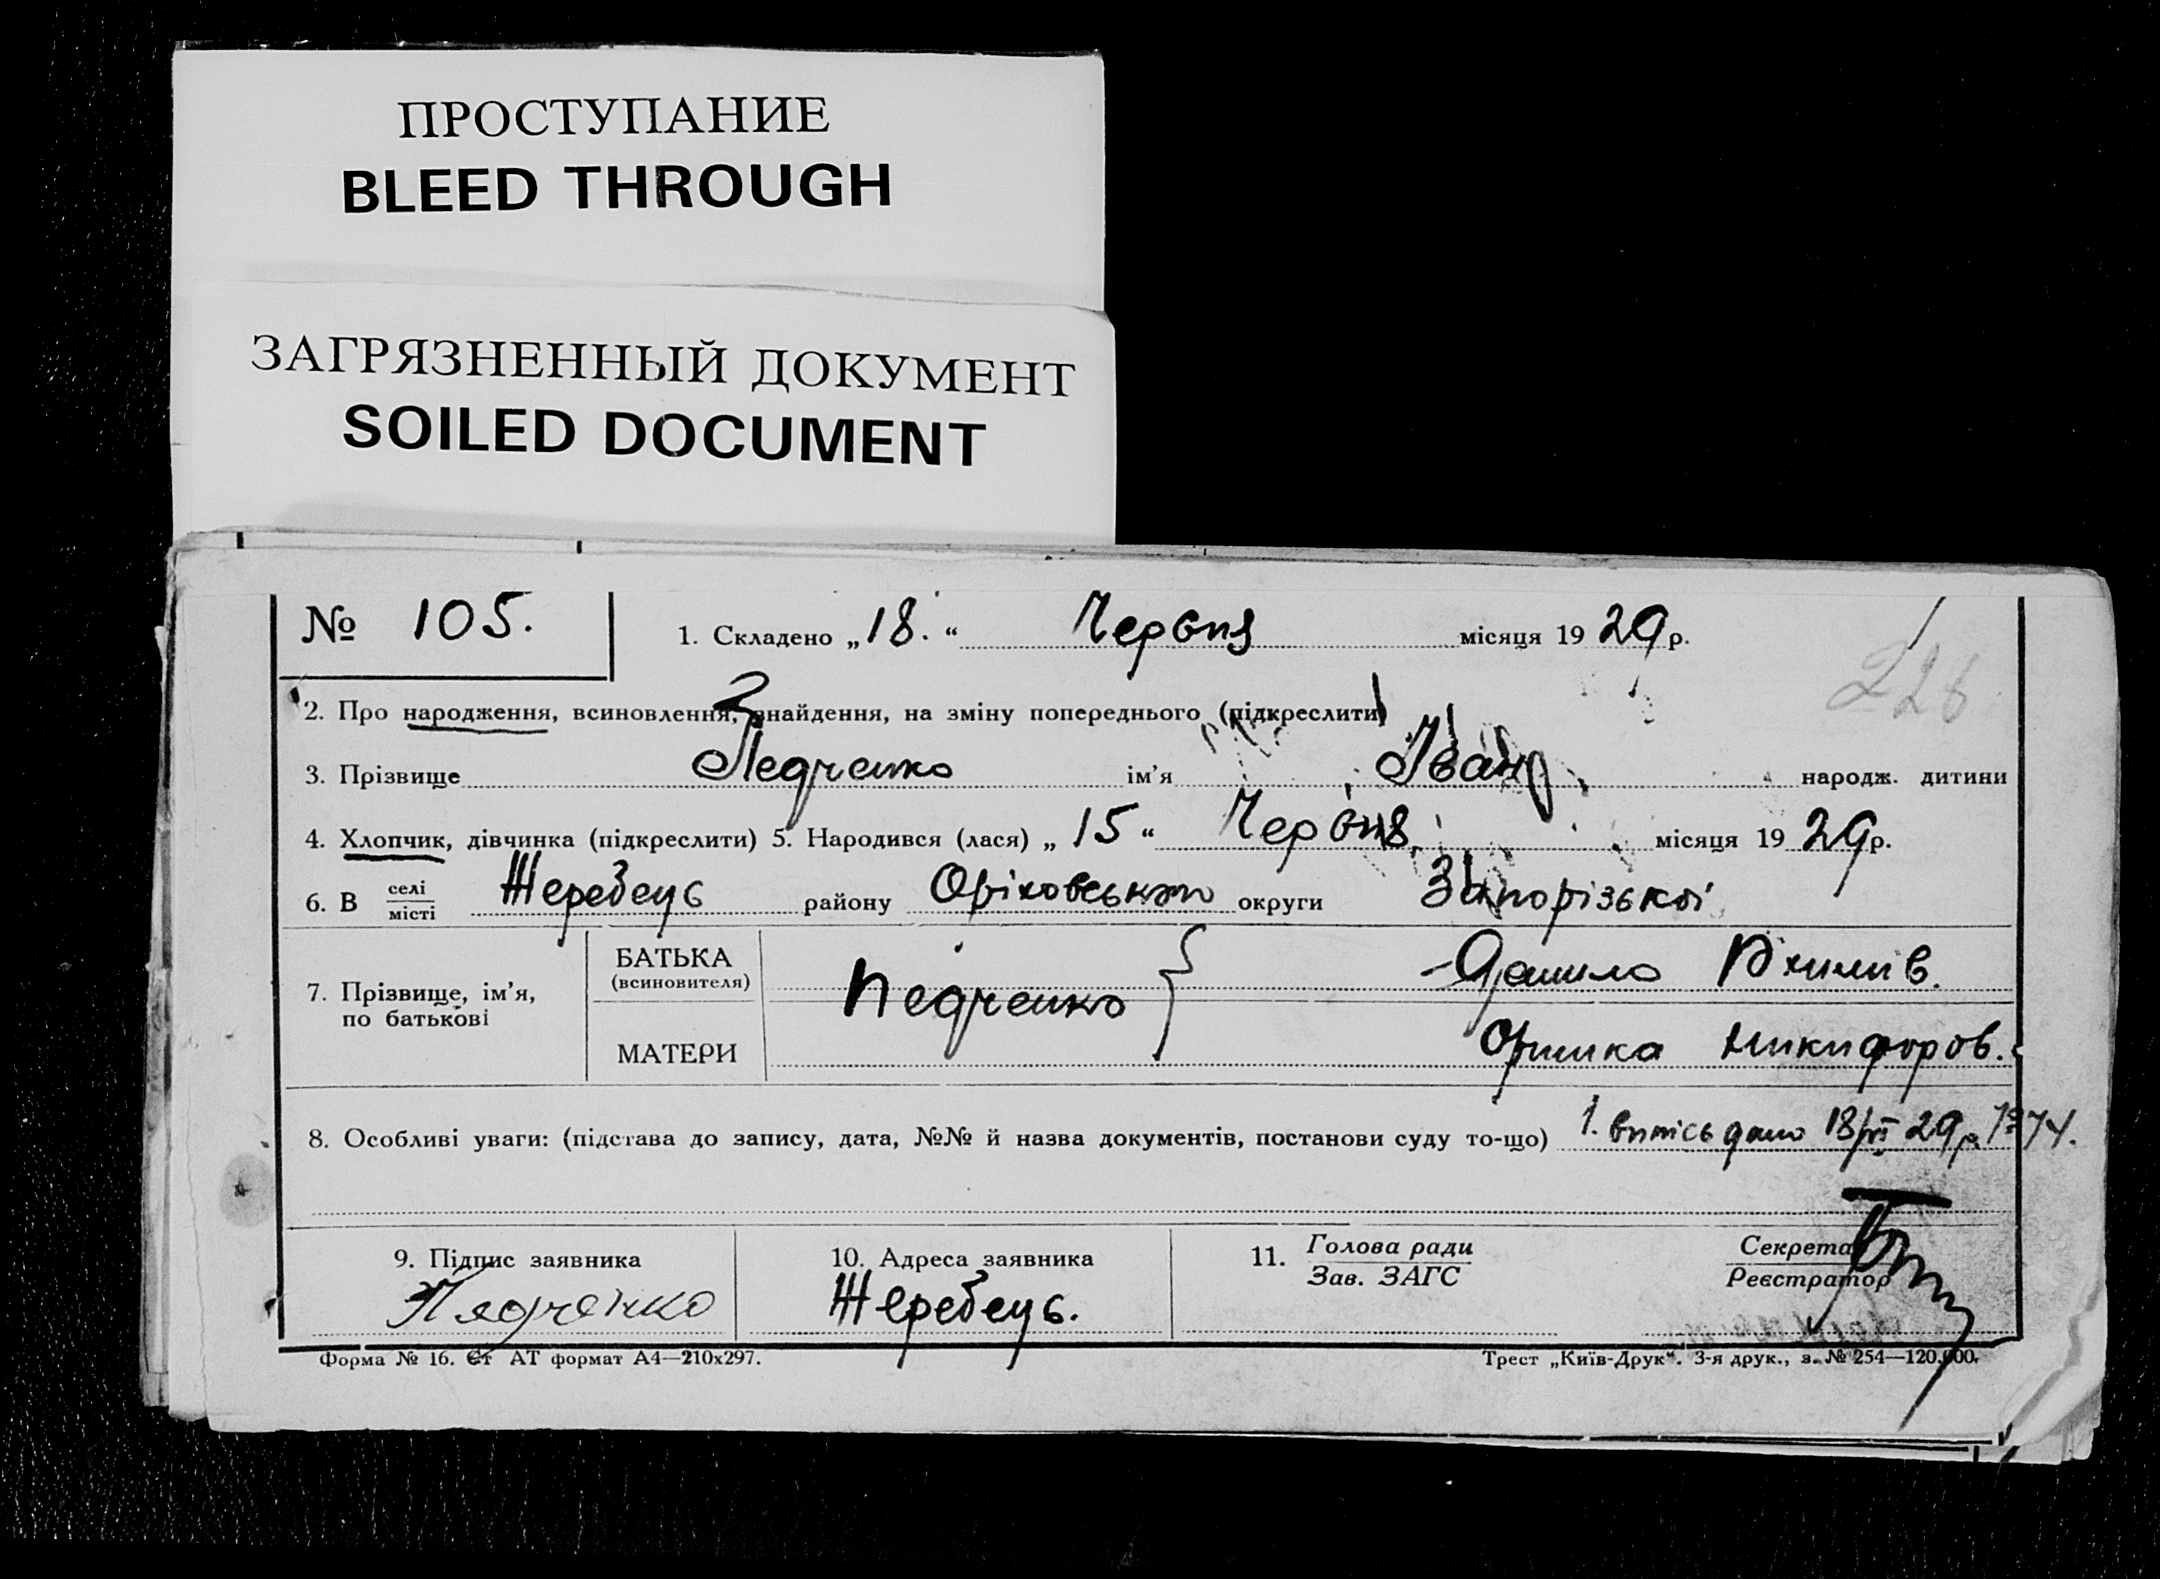 ПРОСТУПАНИЕ
BLEED THROUGH
ЗАГРЯЗНЕННЫЙ ДОКУМЕНТ
SOILED DOCUMENT
№ 105. 1. Складено „18.“ Червня місяця 1929 р.
226
2. Про народження, всиновлення, знайдення, на зміну попереднього (підкреслити)
3. Прізвище Педченко ім’я Іван народж. дитини
4. Хлопчик, дівчинка (підкреслити) 5. Народився (лася) „15“ Червня місяця 1929 р.
6. В селі/місті Жеребець району Оріховського округи Запорізької
7. Прізвище, ім’я, по батькові
БАТЬКА (всиновителя) Педченко Данило
МАТЕРИ Оришка Никифоров.
8. Особливі уваги: (підстава до запису, дата, №№ й назва документів, постанови суду то-що) 1. витись дано 18/VI 29 р.
9. Підпис заявника 10. Адреса заявника 11. Голова ради/Зав. ЗАГС Секретар/Реєстратор
Пядченко Жеребець.
Форма № 16. Ст АТ формат А4—210х297. Трест „Київ-Друк“. 3-я друк., з. № 254—120.000.